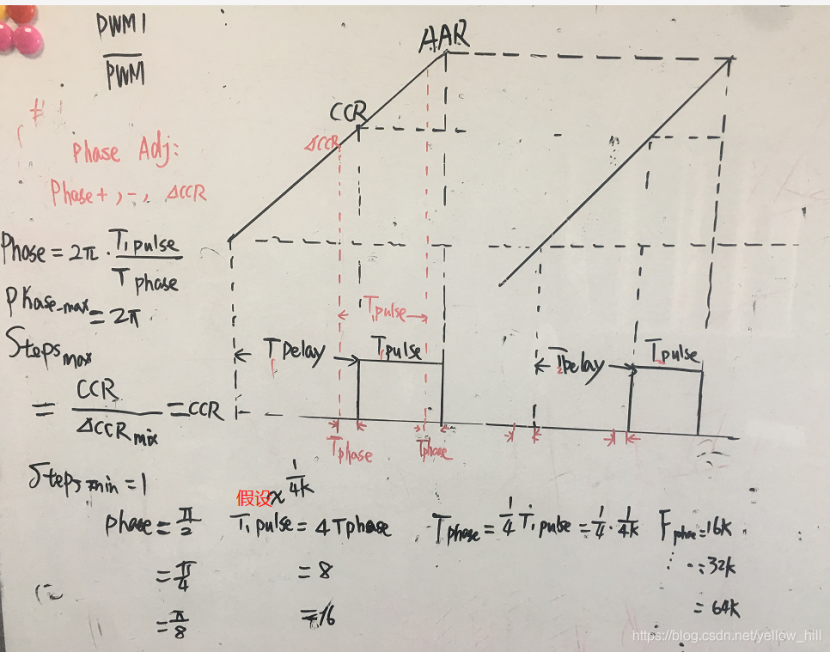 PWM1
PWM
Phase Adj:
Phase+,-, ΔCCR
Phase = 2π · T1pulse / Tphase
Phase_max = 2π
Steps max
= CCR / ΔCCR mix = CCR
Steps min = 1
AAR
CCR
ΔCCR
T1pulse
TDelay
Tpulse
TDelay
Tpulse
Tphase
Tphase
假设 1/4k
phase = π/2
T1pulse = 4Tphase
Tphase = 1/4 T1pulse = 1/4 · 1/4k
Fphase = 16k
= π/4
= 8
= 32k
= π/8
= 16
= 64k
https://blog.csdn.net/yellow_hill